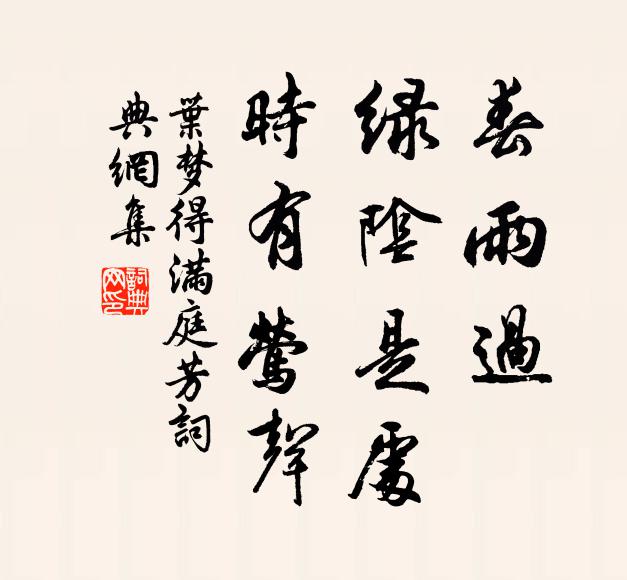 春雨過
綠陰是處
時有鶯聲
葉梦得滿庭芳詞
典網集
詞典
网印